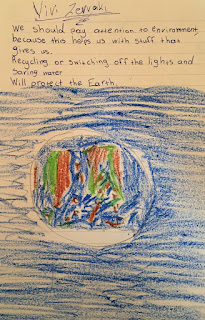 Vivi Zervaki
We should pay attention to Environment
because this helps us with stuff that
gives us.
Recycling or switching off the lights and
saving water
Will protect the Earth.